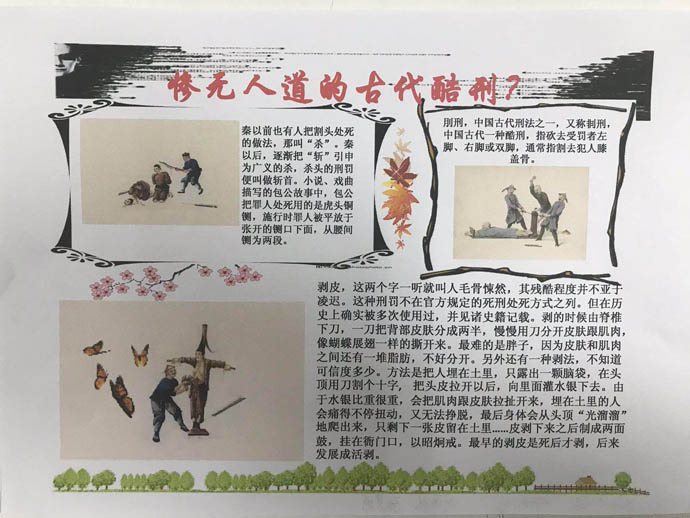 惨无人道的古代酷刑?
秦以前也有人把割头处死
的做法，那叫“杀”。秦
以后，逐渐把“斩”引申
为广义的杀，杀头的刑罚
便叫做斩首。小说、戏曲
描写的包公故事中，包公
把罪人处死用的是虎头铜
铡，施行时罪人被平放于
张开的铡口下面，从腰间
铡为两段。
刖刑，中国古代刑法之一，又称剕刑，
中国古代一种酷刑，指砍去受罚者左
脚、右脚或双脚，通常指割去犯人膝
盖骨。
剥皮，这两个字一听就叫人毛骨悚然，其残酷程度并不亚于
凌迟。这种刑罚不在官方规定的死刑处死方式之列。但在历
史上确实被多次使用过，并见诸史籍记载。剥的时候由脊椎
下刀，一刀把背部皮肤分成两半，慢慢用刀分开皮肤跟肌肉，
像蝴蝶展翅一样的撕开来。最难的是胖子，因为皮肤和肌肉
之间还有一堆脂肪，不好分开。另外还有一种剥法，不知道
可信度多少。方法是把人埋在土里，只露出一颗脑袋，在头
顶用刀割个十字， 把头皮拉开以后，向里面灌水银下去。由
于水银比重很重，会把肌肉跟皮肤拉扯开来，埋在土里的人
会痛得不停扭动，又无法挣脱，最后身体会从头顶“光溜溜”
地爬出来，只剩下一张皮留在土里……皮剥下来之后制成两面
鼓，挂在衙门口，以昭炯戒。最早的剥皮是死后才剥，后来
发展成活剥。